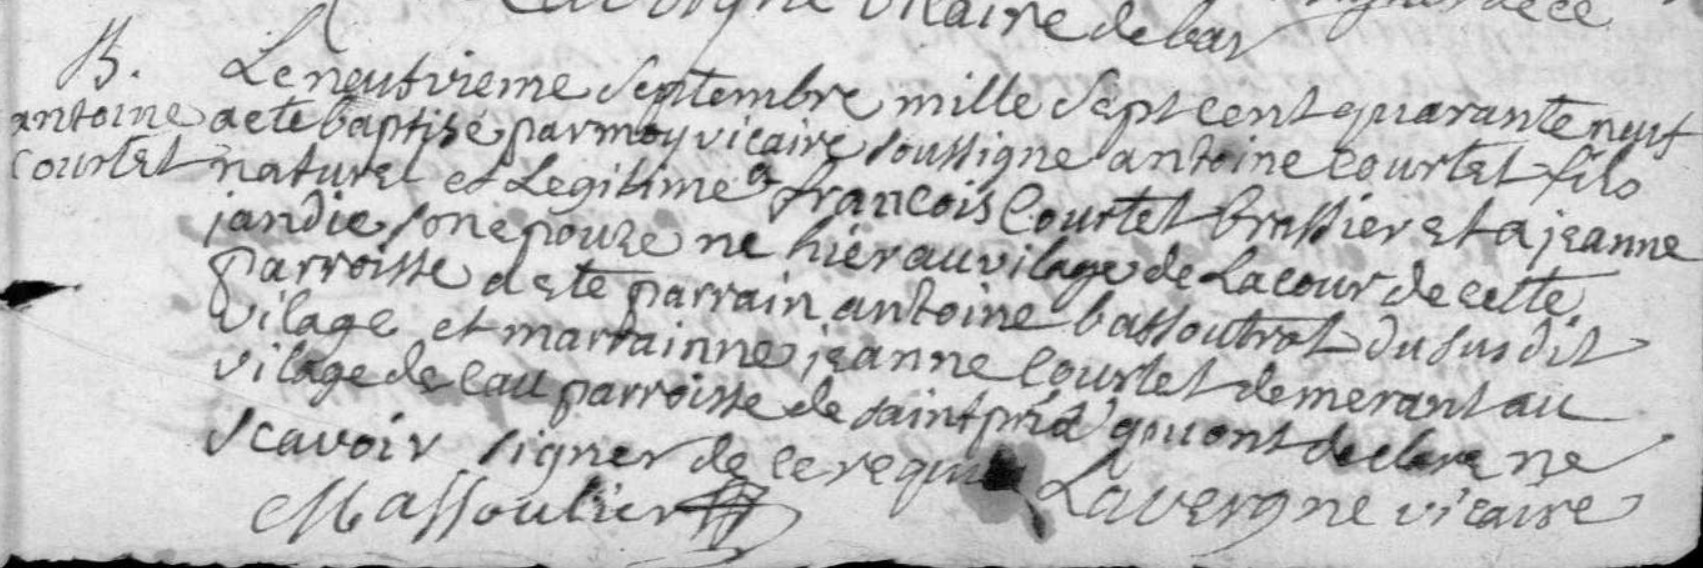 Lavergne vicaire de bar signer de ce
B. Le neufvieme Septembre mille Sept cent quarante neuf
antoine a ete baptisé par moy vicaire soussigne antoine Courtet fils
Courtet naturel et Legitime a francois Courtet brassier et a jeanne
jandie son epouze ne hier au vilage de Lacour de cette
parroisse a ete parrain antoine bassoutrot du susdit
vilage et marrainne jeanne Courtet demerant au
vilage de parroisse de saint qui ont declare ne
scavoir signer de ce requis Lavergne vicaire
Massoulier